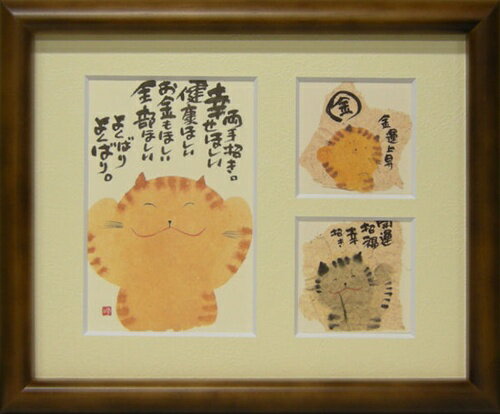 両手招き。
幸せほしい
健康ほしい
お金もほしい
全部ほしい
よくばり
よくばり。
金
金運上昇
開運
招福
幸
招き